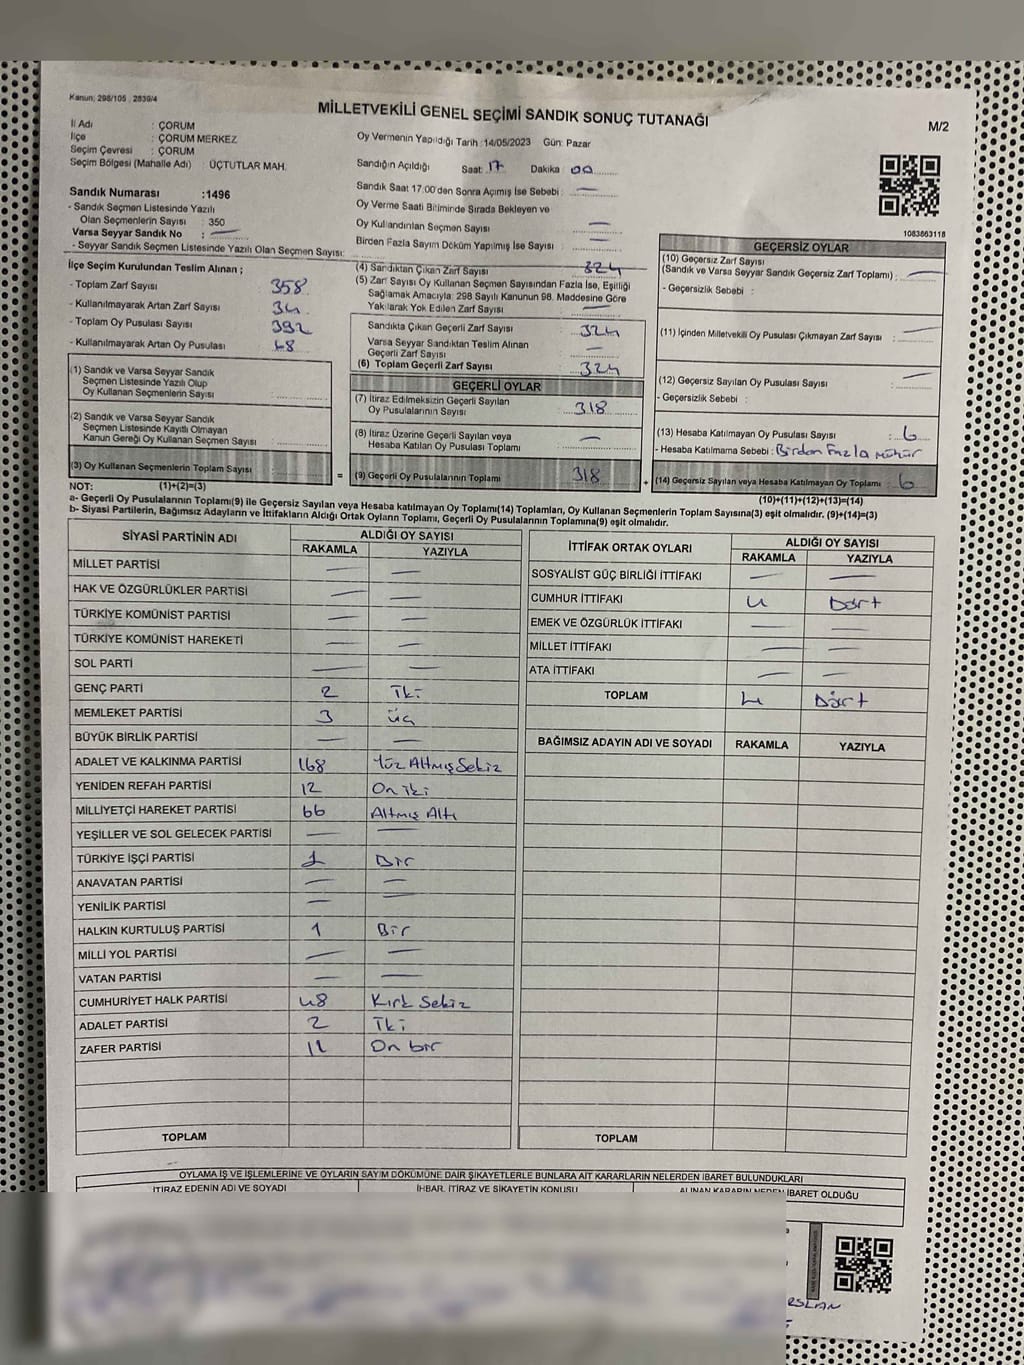 Kanun: 298/105 , 2839/4
MİLLETVEKİLİ GENEL SEÇİMİ SANDIK SONUÇ TUTANAĞI
M/2
İl Adı : ÇORUM
İlçe : ÇORUM MERKEZ
Seçim Çevresi : ÇORUM
Seçim Bölgesi (Mahalle Adı) : ÜÇTUTLAR MAH.
Oy Vermenin Yapıldığı Tarih :14/05/2023 Gün: Pazar
Sandığın Açıldığı Saat: 17 Dakika 00
Sandık Saat 17.00'den Sonra Açımış İse Sebebi : —
Oy Verme Saati Bitiminde Sırada Bekleyen ve
Oy Kullandırılan Seçmen Sayısı —
Birden Fazla Sayım Döküm Yapılmış İse Sayısı —
Sandık Numarası :1496
- Sandık Seçmen Listesinde Yazılı
Olan Seçmenlerin Sayısı : 350
Varsa Seyyar Sandık No : —
- Seyyar Sandık Seçmen Listesinde Yazılı Olan Seçmen Sayısı:
1083863118
İlçe Seçim Kurulundan Teslim Alınan ;
- Toplam Zarf Sayısı 358
- Kullanılmayarak Artan Zarf Sayısı 34
- Toplam Oy Pusulası Sayısı 392
- Kullanılmayarak Artan Oy Pusulası 68
(1) Sandık ve Varsa Seyyar Sandık
Seçmen Listesinde Yazılı Olup
Oy Kullanan Seçmenlerin Sayısı
(2) Sandık ve Varsa Seyyar Sandık
Seçmen Listesinde Kayıtlı Olmayan
Kanun Gereği Oy Kullanan Seçmen Sayısı
(3) Oy Kullanan Seçmenlerin Toplam Sayısı
(4) Sandıktan Çıkan Zarf Sayısı 324
(5) Zarf Sayısı Oy Kullanan Seçmen Sayısından Fazla İse, Eşitliği
Sağlamak Amacıyla; 298 Sayılı Kanunun 98. Maddesine Göre
Yakılarak Yok Edilen Zarf Sayısı —
Sandıkta Çıkan Geçerli Zarf Sayısı 324
Varsa Seyyar Sandıktan Teslim Alınan
Geçerli Zarf Sayısı —
(6) Toplam Geçerli Zarf Sayısı 324
GEÇERLİ OYLAR
(7) İtiraz Edilmeksizin Geçerli Sayılan
Oy Pusulalarının Sayısı 318
(8) İtiraz Üzerine Geçerli Sayılan veya
Hesaba Katılan Oy Pusulası Toplamı —
= (9) Geçerli Oy Pusulalarının Toplamı 318
GEÇERSİZ OYLAR
(10) Geçersiz Zarf Sayısı
(Sandık ve Varsa Seyyar Sandık Geçersiz Zarf Toplamı) : —
- Geçersizlik Sebebi :
(11) İçinden Milletvekili Oy Pusulası Çıkmayan Zarf Sayısı : —
(12) Geçersiz Sayılan Oy Pusulası Sayısı : —
- Geçersizlik Sebebi :
(13) Hesaba Katılmayan Oy Pusulası Sayısı : 6
- Hesaba Katılmama Sebebi : Birden Fazla Mühür
+ (14) Geçersiz Sayılan veya Hesaba Katılmayan Oy Toplamı 6
NOT: (1)+(2)=(3)
(10)+(11)+(12)+(13)=(14)
a- Geçerli Oy Pusulalarının Toplamı(9) ile Geçersiz Sayılan veya Hesaba Katılmayan Oy Toplamı(14) Toplamları, Oy Kullanan Seçmenlerin Toplam Sayısına(3) eşit olmalıdır. (9)+(14)=(3)
b- Siyasi Partilerin, Bağımsız Adayların ve İttifakların Aldığı Ortak Oyların Toplamı, Geçerli Oy Pusulalarının Toplamına(9) eşit olmalıdır.
SİYASİ PARTİNİN ADI ALDIĞI OY SAYISI
RAKAMLA YAZIYLA
MİLLET PARTİSİ — —
HAK VE ÖZGÜRLÜKLER PARTİSİ — —
TÜRKİYE KOMÜNİST PARTİSİ — —
TÜRKİYE KOMÜNİST HAREKETİ — —
SOL PARTİ — —
GENÇ PARTİ 2 İki
MEMLEKET PARTİSİ 3 Üç
BÜYÜK BİRLİK PARTİSİ — —
ADALET VE KALKINMA PARTİSİ 168 Yüz Altmış Sekiz
YENİDEN REFAH PARTİSİ 12 On iki
MİLLİYETÇİ HAREKET PARTİSİ 66 Altmış Altı
YEŞİLLER VE SOL GELECEK PARTİSİ — —
TÜRKİYE İŞÇİ PARTİSİ 1 Bir
ANAVATAN PARTİSİ — —
YENİLİK PARTİSİ — —
HALKIN KURTULUŞ PARTİSİ 1 Bir
MİLLİ YOL PARTİSİ — —
VATAN PARTİSİ — —
CUMHURİYET HALK PARTİSİ 48 Kırk Sekiz
ADALET PARTİSİ 2 İki
ZAFER PARTİSİ 11 On bir
TOPLAM
İTTİFAK ORTAK OYLARI ALDIĞI OY SAYISI
RAKAMLA YAZIYLA
SOSYALİST GÜÇ BİRLİĞİ İTTİFAKI — —
CUMHUR İTTİFAKI 4 Dört
EMEK VE ÖZGÜRLÜK İTTİFAKI — —
MİLLET İTTİFAKI — —
ATA İTTİFAKI — —
TOPLAM 4 Dört
BAĞIMSIZ ADAYIN ADI VE SOYADI RAKAMLA YAZIYLA
TOPLAM
OYLAMA İŞ VE İŞLEMLERİNE VE OYLARIN SAYIM DÖKÜMÜNE DAİR ŞİKAYETLERLE BUNLARA AİT KARARLARIN NELERDEN İBARET BULUNDUKLARI
İTİRAZ EDENİN ADI VE SOYADI İHBAR, İTİRAZ VE ŞİKAYETİN KONUSU ALINAN KARARIN NEDEN İBARET OLDUĞU
RSLAN